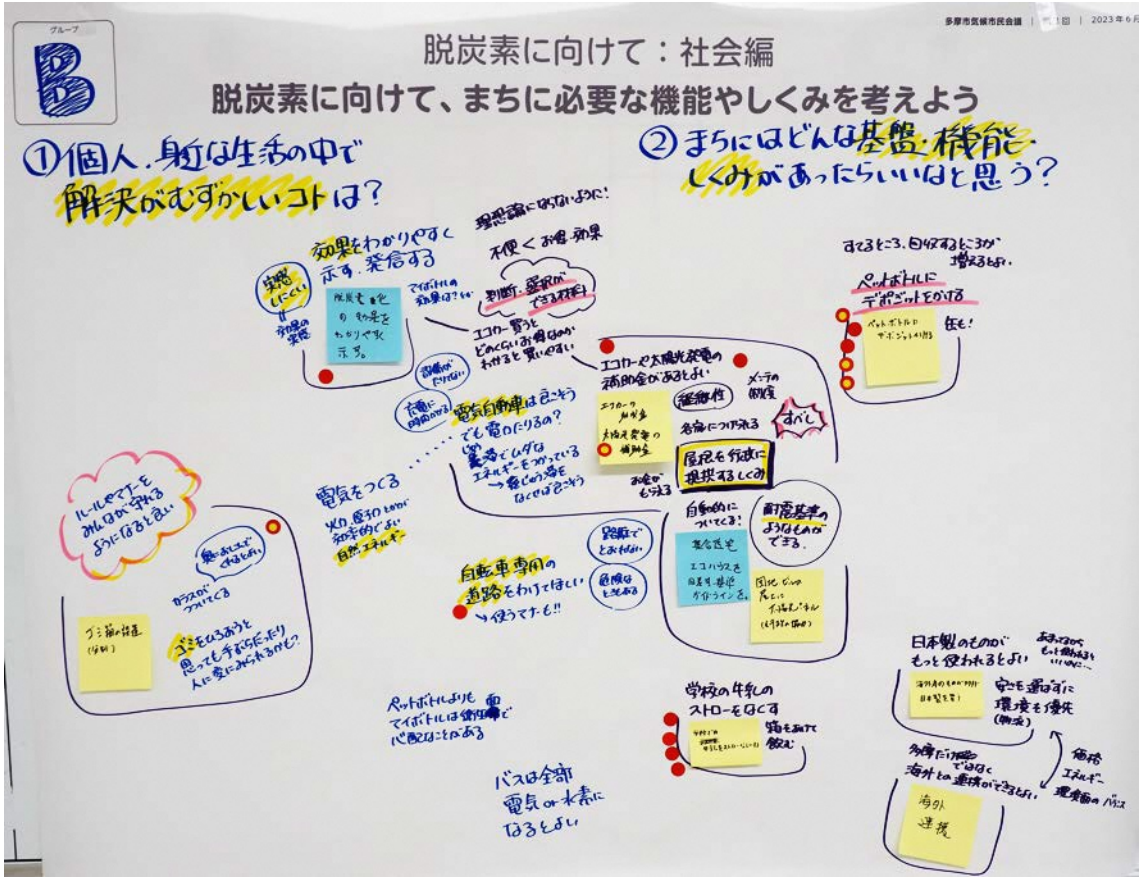 グループ
B
多摩市気候市民会議 | 第1回 | 2023年6月
脱炭素に向けて:社会編
脱炭素に向けて、まちに必要な機能やしくみを考えよう
①個人.身近な生活の中で
解決がむずかしいコトは?
②まちにはどんな基盤・機能・
しくみがあったらいいなと思う?
理想論にならないように!
不便<お得・効果
判断・選択が
できる材料
効果をわかりやすく
示す、発信する
実感
しにくい
効果の
実感
マイボトルの
効果は?
脱炭素
の効果を
わかりやすく
示す。
エコカー買うと
どのくらいお得なのか
わかると買いやすい
設備が
たりてない
充電に
時間かかる
電気自動車は良こそう
でも電力たりるの?
ムダな
エネルギーをつかっている
なくせば良こそう
電気をつくる
火力、原子力とかが
効率的でよい
自然エネルギー
エコカーや太陽光発電の
補助金があるとよい
エコカーの
補助金
太陽光発電の
補助金
継続性
メンテの
制度
各家につけられる
すばし
屋根を行政に
提供するしくみ
お金が
もらえる
自動的に
ついてくる!
耐震基準の
ようなものが
できる.
集合住宅
エコハウスを
ガイドラインを。
団地
屋上に
すてるところ、回収するところが
増えるとよい
ペットボトルに
デポジットをかける
ペットボトルに
デポジットかける
缶も!
ルールやマナーを
みんなが守れる
ようになると良い
カラスが
つついてくる
ゴミ箱の設置
(分別)
ゴミをひろおうと
思っても手ぶらだったり
人に変にみられるかも?
自転車専用の
道路をわけてほしい
→使うマナーも!!
路駐で
とおれない
危険な
ときもある
ペットボトルよりも
マイボトルは衛生面で
心配なことがある
バスは全部
電気or水素に
なるとよい
学校の牛乳の
ストローをなくす
箱をあけて
飲む
日本製のものが
もっと使われるとよい
安さを選ばずに
環境も優先
(物流)
多摩だけではなく
海外との連携ができるとよい
海外
連携
価格
エネルギー
環境面のバランス